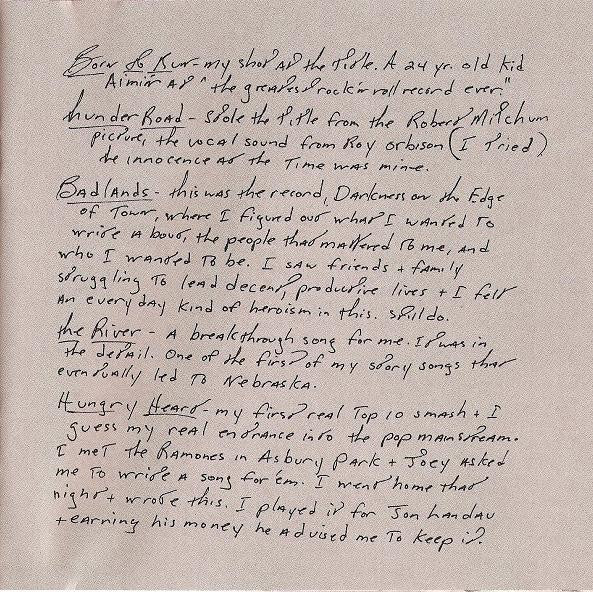 Born to Run - my shot at the title. A 24 yr. old kid
Aimin' at "the greatest rock'n'roll record ever."
thunder Road - stole the title from the Robert Mitchum
picture, the vocal sound from Roy orbison (I tried)
the innocence at the time was mine.
Badlands - this was the record, Darkness on the Edge
of Town, where I figured out what I wanted to
write about, the people that mattered to me, and
who I wanted to be. I saw friends + family
struggling to lead decent, productive lives + I felt
an everyday kind of heroism in this. Still do.
the River - A breakthrough song for me. It was in
the detail. One of the first of my story songs that
eventually led to Nebraska.
Hungry Heart - my first real Top 10 smash + I
guess my real entrance into the pop mainstream.
I met the Ramones in Asbury Park + Joey asked
me to write a song for 'em. I went home that
night + wrote this. I played it for Jon Landau
+ earning his money he advised me to keep it.